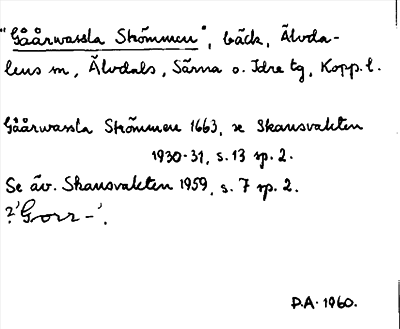 "Gåårwassla Strömmen", bäck, Älvda-
lens sn, Älvdals, Särna o. Idre tg, Kopp. l.
Gåårwassla Strömmen 1663, se Skansvakten
1930-31, s. 13 sp. 2.
Se äv. Skansvakten 1959, s. 7 sp. 2.
?'Gorr-'.
P.A. 1960.